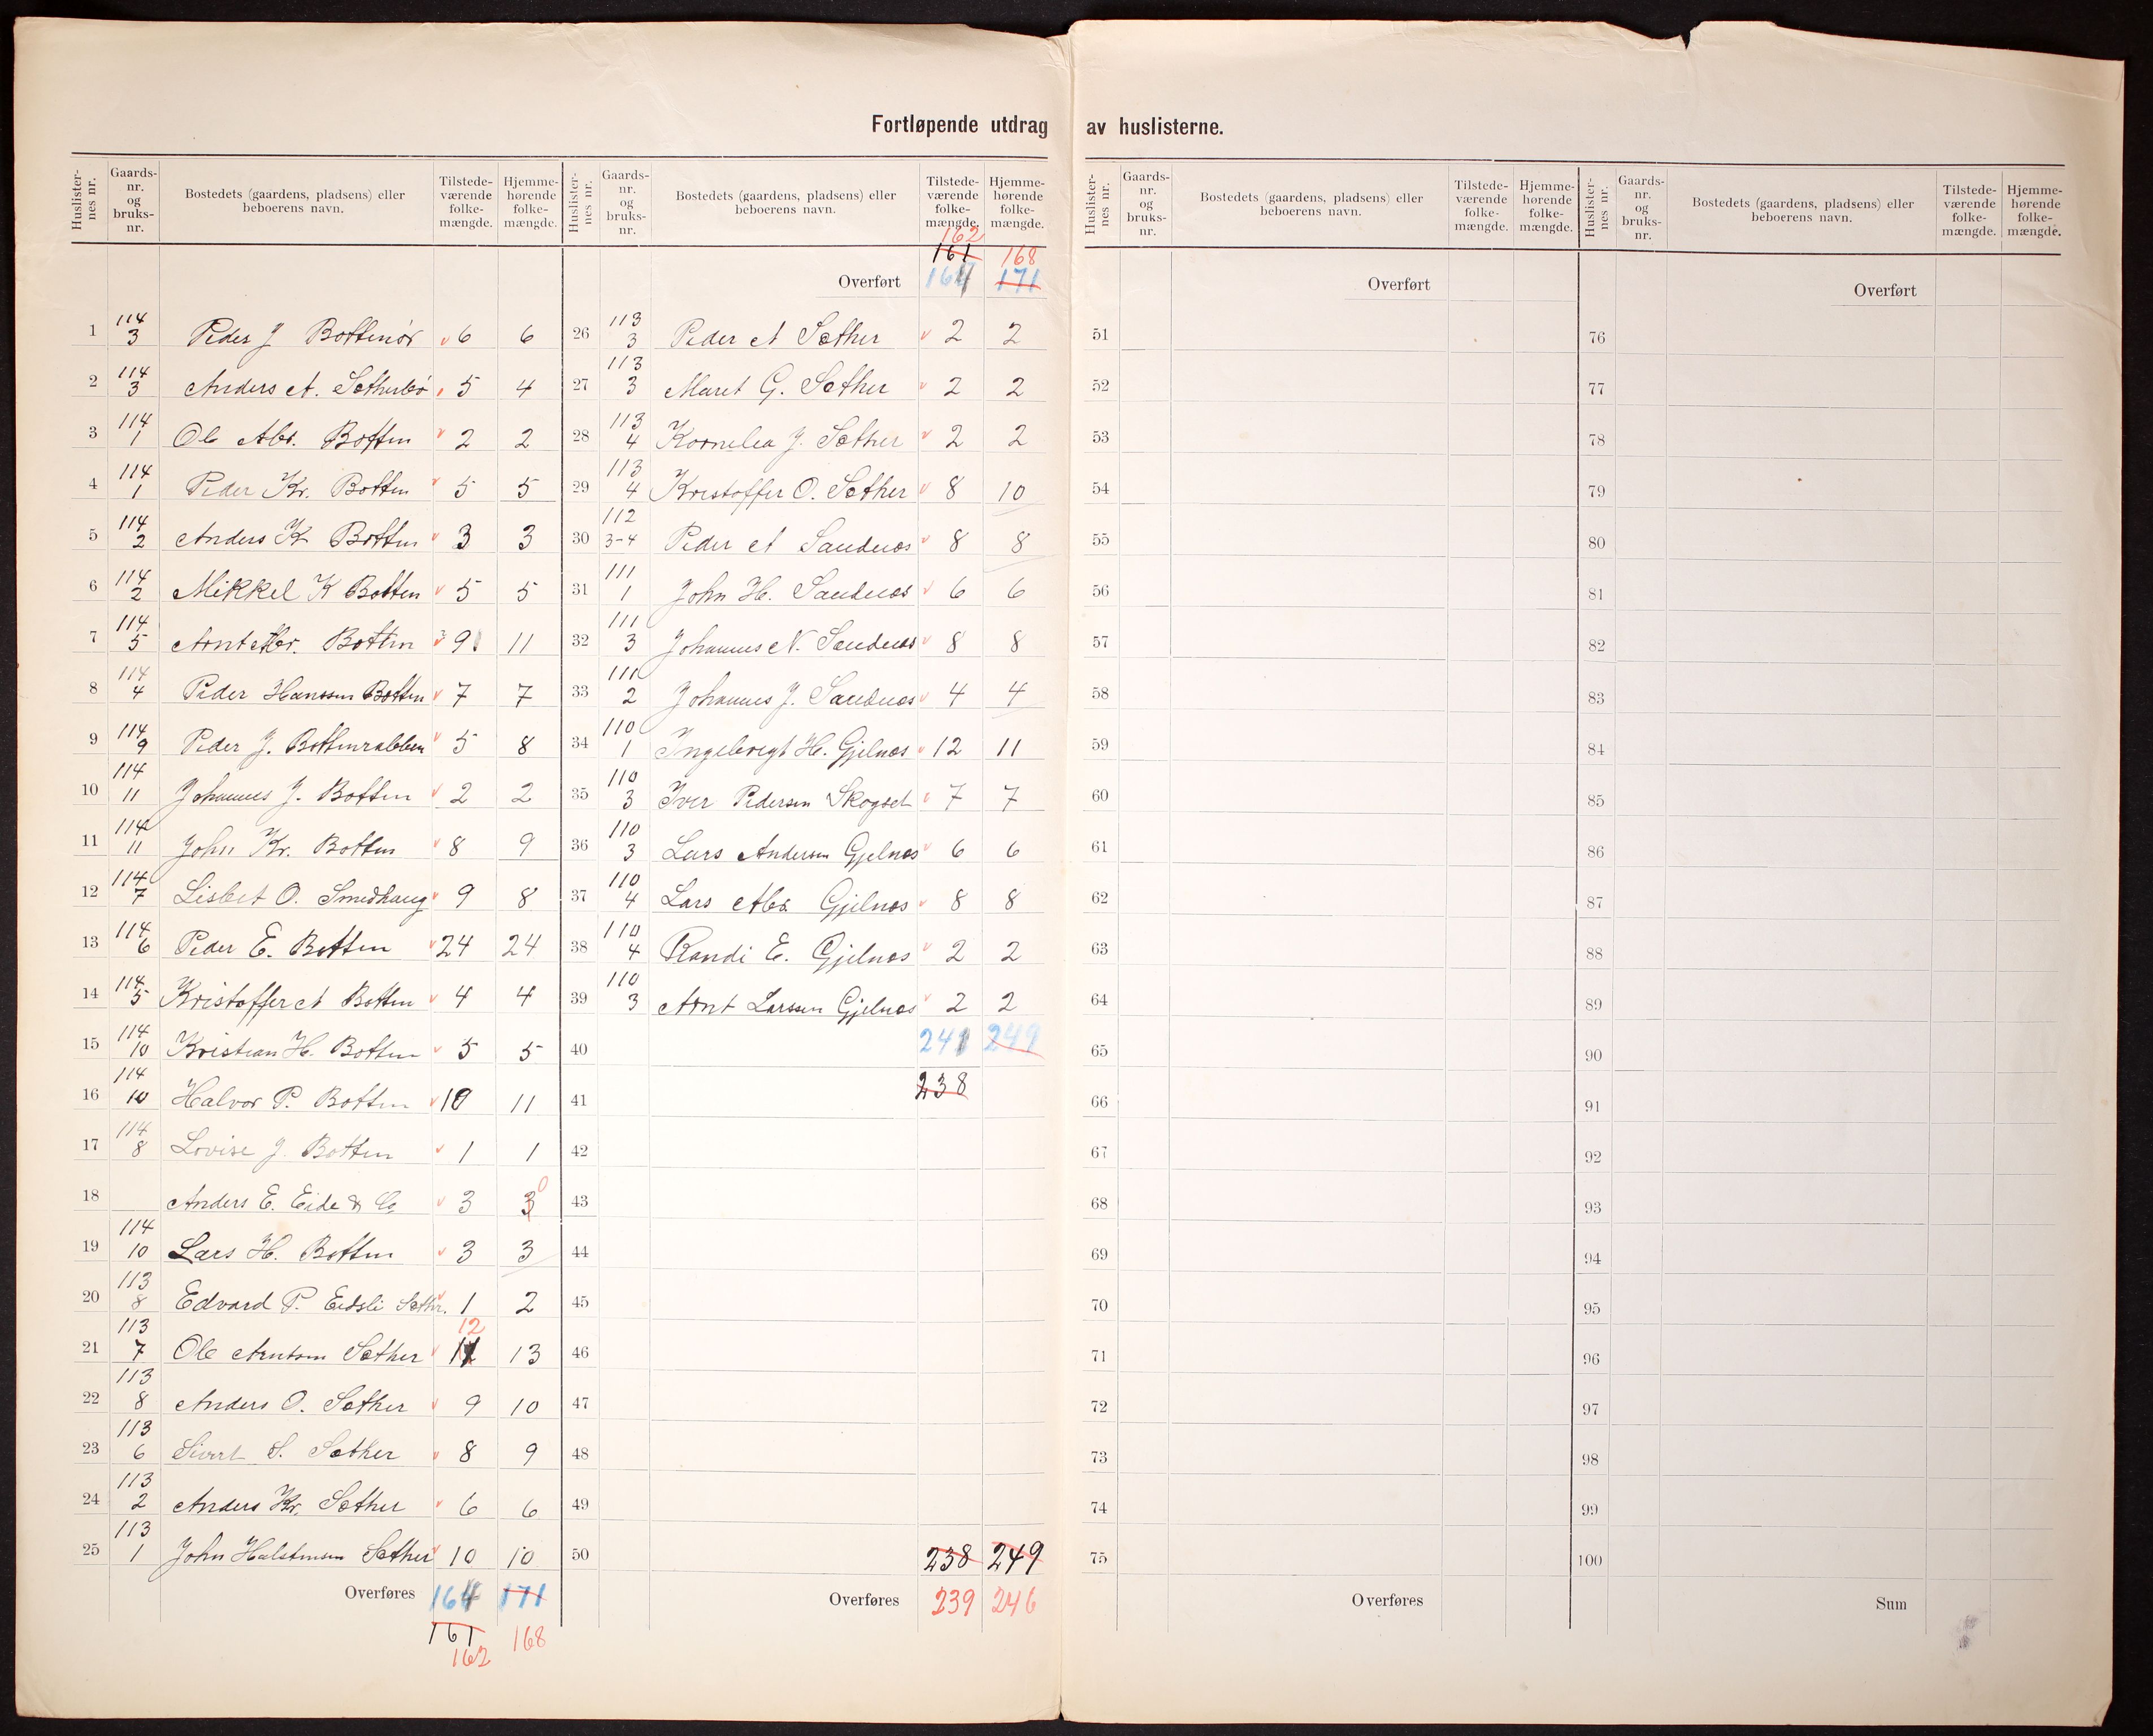 Fortløpende utdrag av huslisterne.
Huslister-nes nr. Gaards-nr. og bruks-nr. Bostedets (gaardens, pladsens) eller beboerens navn. Tilstede-værende folke-mængde. Hjemme-hørende folke-mængde.
1 114 3 Peder J Bottenør 6 6
2 114 3 Anders A. Sætherbø 5 4
3 114 1 Ole Abr. Botten 2 2
4 114 1 Peder Kr. Botten 5 5
5 114 2 Anders K Botten 3 3
6 114 2 Mikkel K Botten 5 5
7 114 5 Arnt Abr. Botten 9 11
8 114 4 Peder Hanssen Botten 7 7
9 114 9 Peder J. Bottenrabben 5 8
10 114 11 Johannes J. Botten 2 2
11 114 11 John Kr. Botten 8 9
12 114 7 Lisbet O. Smedhaug 9 8
13 114 6 Peder E. Botten 24 24
14 114 5 Kristoffer A Botten 4 4
15 114 10 Kristian H. Botten 5 5
16 114 10 Halvor P. Botten 10 11
17 114 8 Lovise J. Botten 1 1
18 Anders E. Eide & Co 3 3 0
19 114 10 Lars H. Botten 3 3
20 113 8 Edvard P. Eidsli Sæthr. 1 2
21 113 7 Ole Arntsen Sæther 12 13
22 113 8 Anders O. Sæther 9 10
23 113 6 Sivert S. Sæther 8 9
24 113 2 Anders Kr. Sæther 6 6
25 113 1 John Halstensen Sæther 10 10
Overføres 164 171
161
162 168
Huslister-nes nr. Gaards-nr. og bruks-nr. Bostedets (gaardens, pladsens) eller beboerens navn. Tilstede-værende folke-mængde. Hjemme-hørende folke-mængde.
162
161 168
Overført 164 171
26 113 3 Peder A Sæther 2 2
27 113 3 Maret G. Sæther 2 2
28 113 4 Kornelia J. Sæther 2 2
29 113 4 Kristoffer O. Sæther 8 10
30 112 3-4 Peder A Sandnæs 8 8
31 111 1 John H. Sandnæs 6 6
32 111 3 Johannes N. Sandnæs 8 8
33 111 2 Johannes J. Sandnæs 4 4
34 110 1 Ingebregt H. Gjelnæs 12 11
35 110 3 Iver Pedersen Skogset 7 7
36 110 3 Lars Andersen Gjelnæs 6 6
37 110 4 Lars Abr. Gjelnæs 8 8
38 110 4 Randi E. Gjelnæs 2 2
39 110 3 Arnt Larssen Gjelnæs 2 2
40 241 249
41 238
42
43
44
45
46
47
48
49
50 238 249
Overføres 239 246
Huslister-nes nr. Gaards-nr. og bruks-nr. Bostedets (gaardens, pladsens) eller beboerens navn. Tilstede-værende folke-mængde. Hjemme-hørende folke-mængde.
Overført
51
52
53
54
55
56
57
58
59
60
61
62
63
64
65
66
67
68
69
70
71
72
73
74
75
Overføres
Huslister-nes nr. Gaards-nr. og bruks-nr. Bostedets (gaardens, pladsens) eller beboerens navn. Tilstede-værende folke-mængde. Hjemme-hørende folke-mængde.
Overført
76
77
78
79
80
81
82
83
84
85
86
87
88
89
90
91
92
93
94
95
96
97
98
99
100
Sum